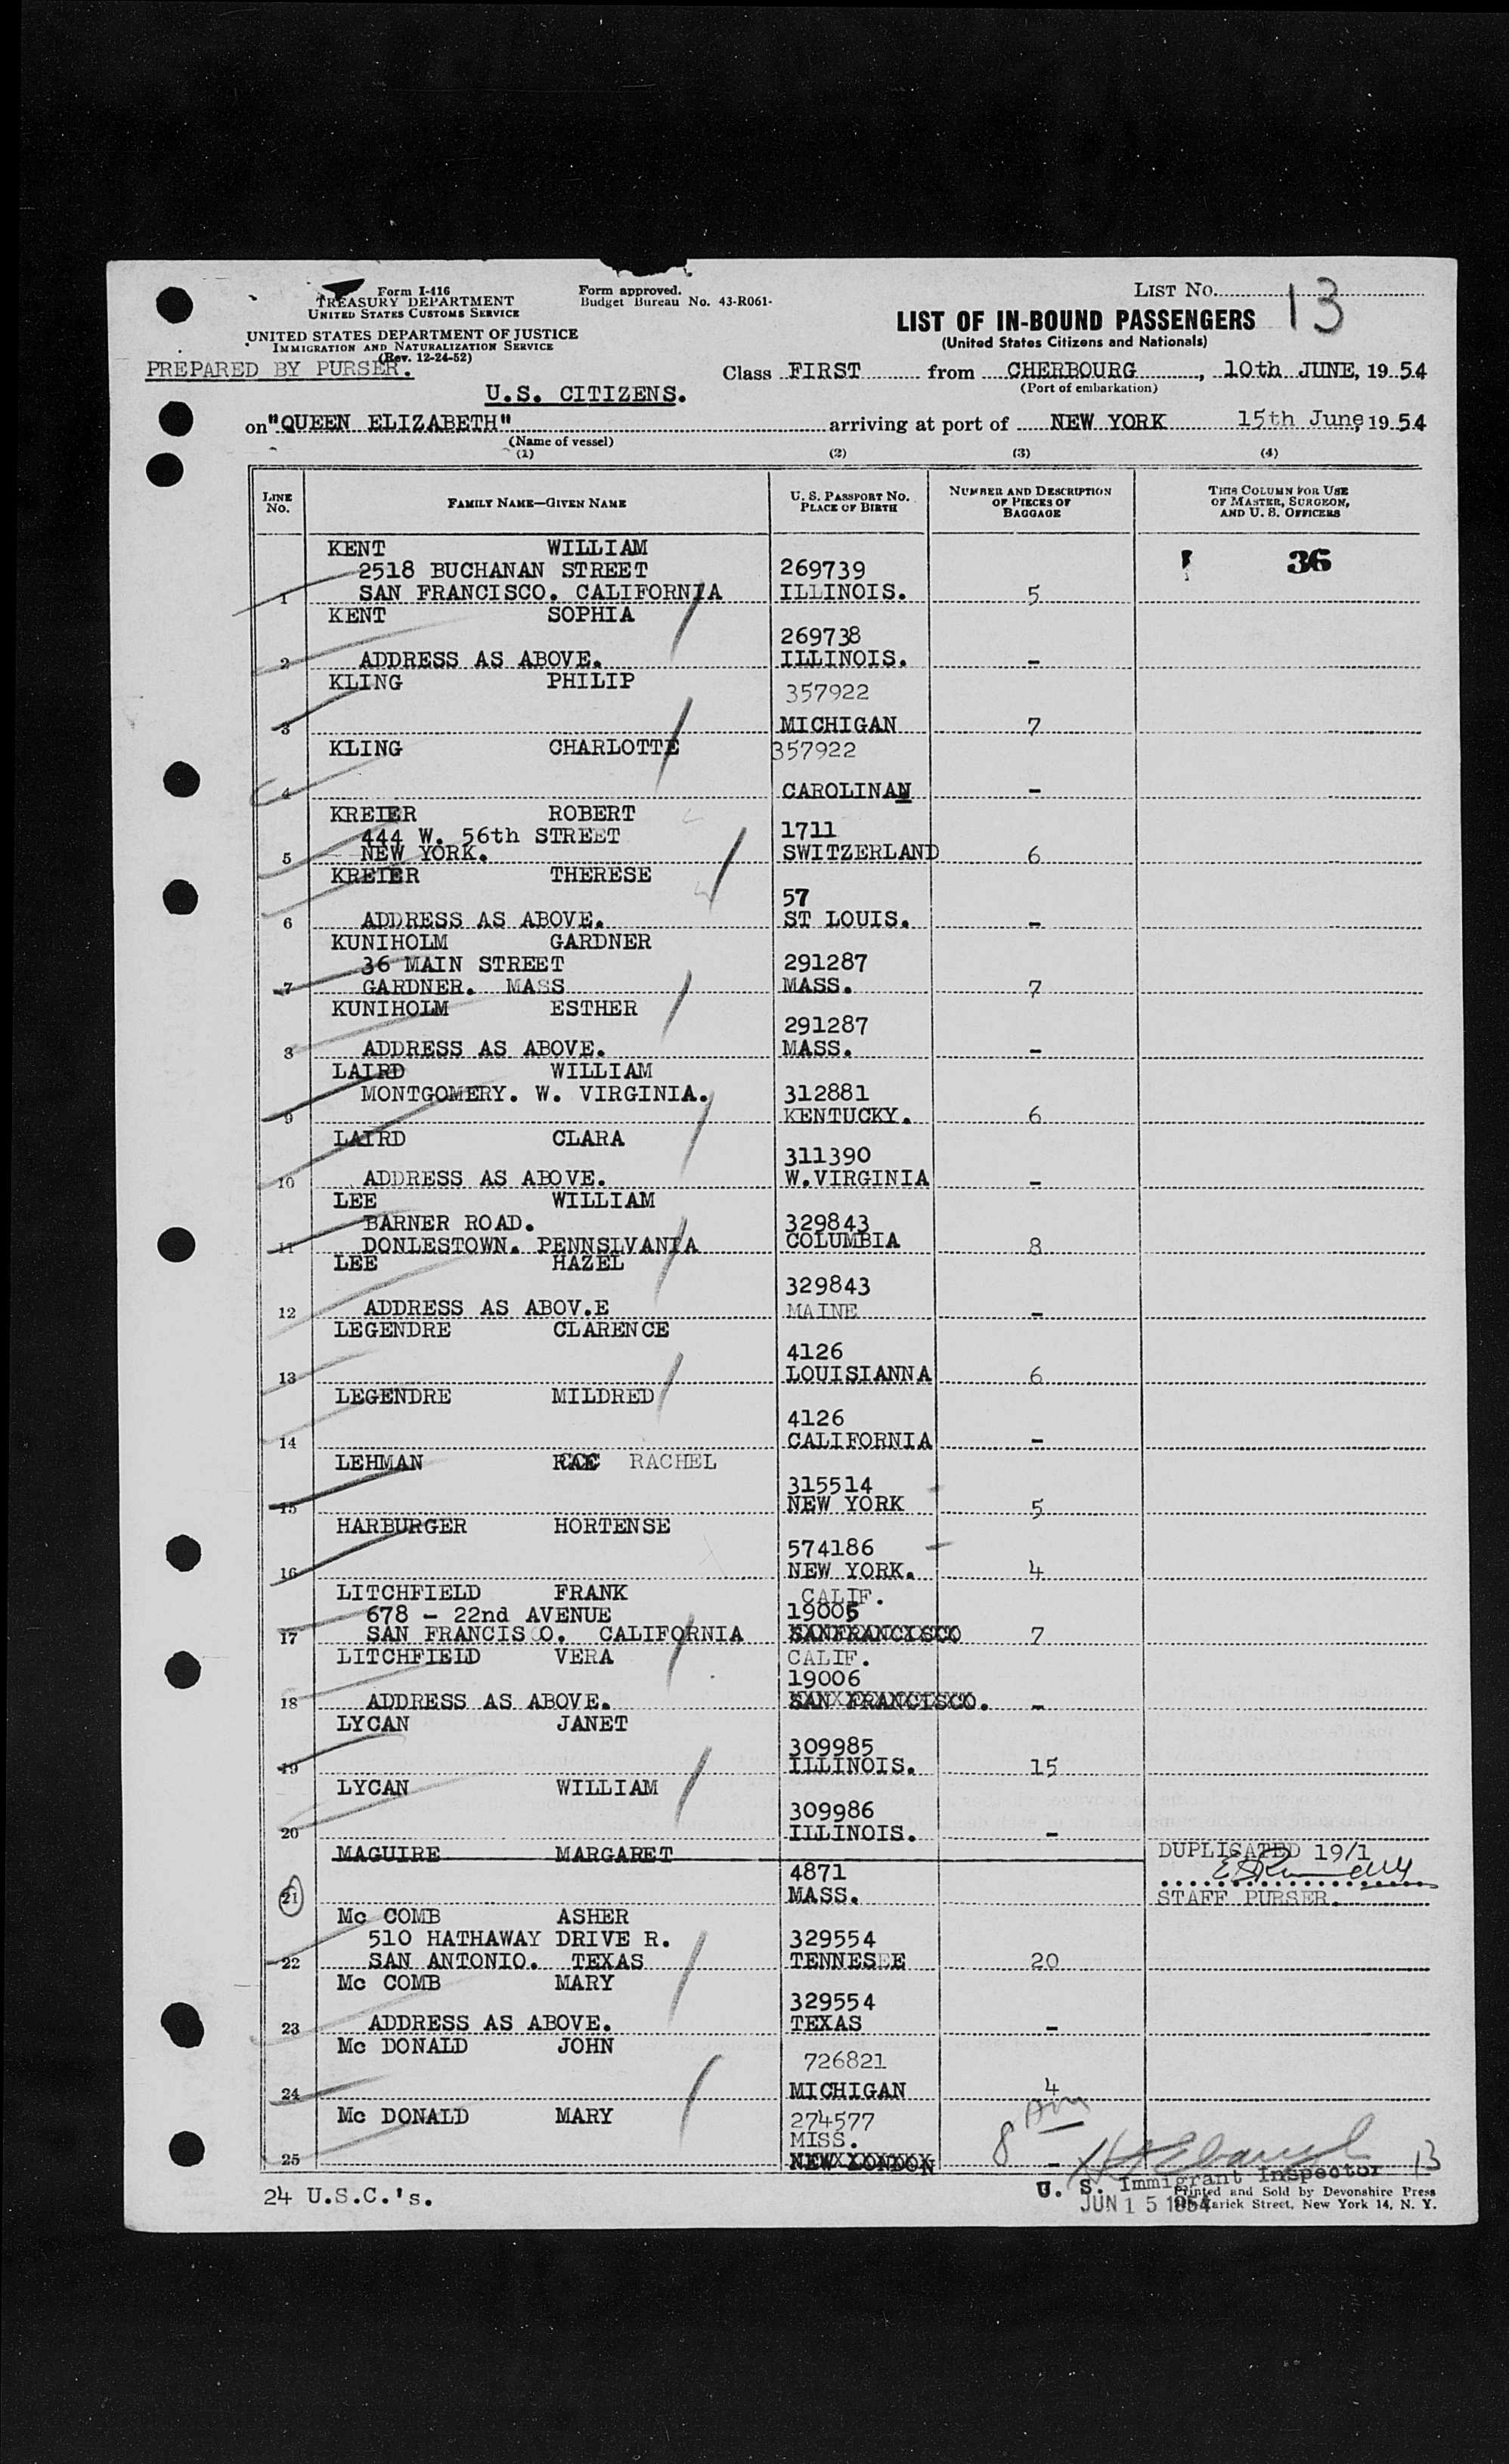 LIST NO. 13
Form I-416
TREASURY DEPARTMENT
UNITED STATES CUSTOMS SERVICE
Form approved.
Budget Bureau No. 43-R061-
UNITED STATES DEPARTMENT OF JUSTICE
IMMIGRATION AND NATURALIZATION SERVICE
(Rev. 12-24-52)
LIST OF IN-BOUND PASSENGERS
(United States Citizens and Nationals)
PREPARED BY PURSER.
Class FIRST from CHERBOURG, 10th JUNE, 1954
(Port of embarkation)
U.S. CITIZENS.
on "QUEEN ELIZABETH" arriving at port of NEW YORK 15th June, 1954
(Name of vessel)
(1) (2) (3) (4)
LINE NO.
FAMILY NAME—GIVEN NAME
U. S. PASSPORT NO.
PLACE OF BIRTH
NUMBER AND DESCRIPTION
OF PIECES OF
BAGGAGE
THIS COLUMN FOR USE
OF MASTER, SURGEON,
AND U. S. OFFICERS
KENT WILLIAM
36
2518 BUCHANAN STREET 269739
1 SAN FRANCISCO. CALIFORNIA ILLINOIS. 5
KENT SOPHIA
269738
2 ADDRESS AS ABOVE. ILLINOIS. -
KLING PHILIP
357922
3 MICHIGAN 7
KLING CHARLOTTE 357922
4 CAROLINAN -
KREIER ROBERT
444 W. 56th STREET 1711
5 NEW YORK. SWITZERLAND 6
KREIER THERESE
57
6 ADDRESS AS ABOVE. ST LOUIS. -
KUNIHOLM GARDNER
36 MAIN STREET 291287
7 GARDNER. MASS MASS. 7
KUNIHOLM ESTHER
291287
8 ADDRESS AS ABOVE. MASS. -
LAIRD WILLIAM
MONTGOMERY. W. VIRGINIA. 312881
9 KENTUCKY. 6
LAIRD CLARA
311390
10 ADDRESS AS ABOVE. W.VIRGINIA -
LEE WILLIAM
BARNER ROAD. 329843
11 DONLESTOWN. PENNSLVANIA COLUMBIA 8
LEE HAZEL
329843
12 ADDRESS AS ABOV.E MAINE -
LEGENDRE CLARENCE
4126
13 LOUISIANNA 6
LEGENDRE MILDRED
4126
14 CALIFORNIA -
LEHMAN RACHEL
315514
15 NEW YORK 5
HARBURGER HORTENSE
574186
16 NEW YORK. 4
LITCHFIELD FRANK CALIF.
678 - 22nd AVENUE 19005
17 SAN FRANCISCO. CALIFORNIA SANFRANCISCO 7
LITCHFIELD VERA CALIF.
19006
18 ADDRESS AS ABOVE. SAN FRANCISCO. -
LYCAN JANET
309985
19 ILLINOIS. 15
LYCAN WILLIAM
309986
20 ILLINOIS. -
MAGUIRE MARGARET DUPLICATED 19/1
4871
21 MASS. STAFF PURSER.
Mc COMB ASHER
510 HATHAWAY DRIVE R. 329554
22 SAN ANTONIO. TEXAS TENNESEE 20
Mc COMB MARY
329554
23 ADDRESS AS ABOVE. TEXAS -
Mc DONALD JOHN
726821
24 MICHIGAN 4
Mc DONALD MARY 274577
MISS.
8 AM
25 NEW LONDON -
13
U. S. Immigrant Inspector
24 U.S.C.'s.
JUN 15 1954
Printed and Sold by Devonshire Press
Varick Street, New York 14, N. Y.